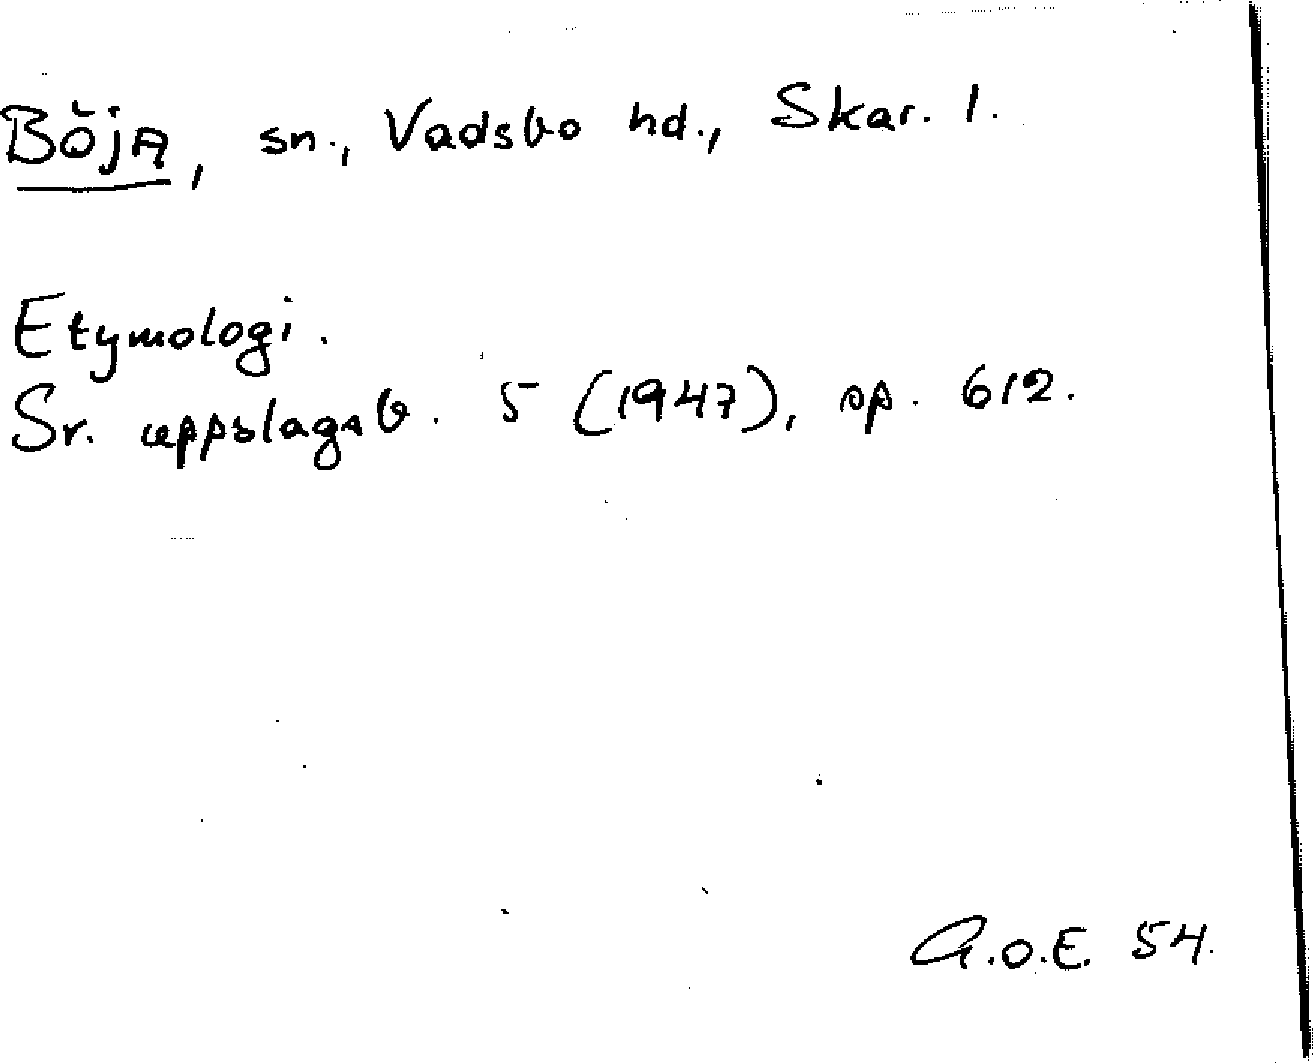 Böja, sn., Vadsbo hd., Skar. l.
Etymologi.
Sv. uppslagsb. 5 (1947), sp. 612.
G.o.E. 54.